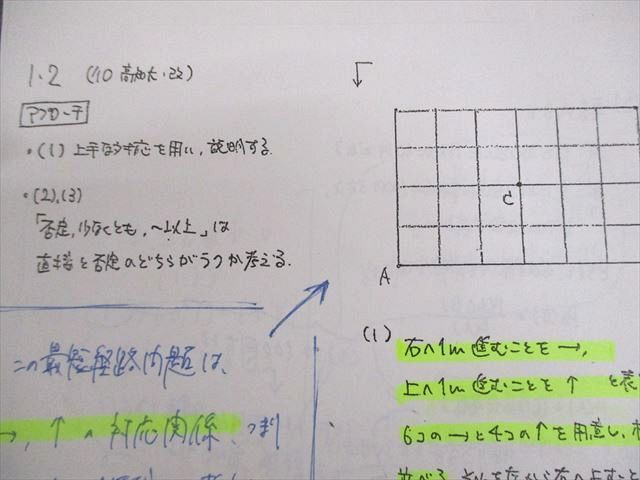 1.2 (10 高知大・改)
アプローチ
・(1) 上手な対応を用い, 説明する.
・(2),(3)
「否定, 少なくとも, 〜以上」は
直接と否定のどちらがラクか考える.
この最短経路問題は、
→, ↑ の対応関係、つまり
C
A
(1)
右へ1m進むことを →,
上へ1m進むことを ↑ と表
6コの→と4コの↑を用意し,
並べる.